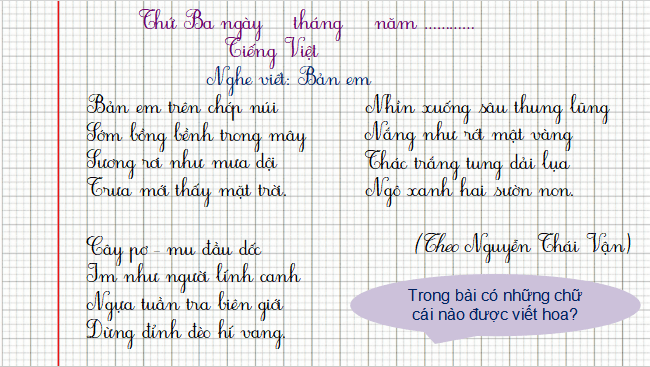 Thứ Ba ngày tháng năm ............
Tiếng Việt
Nghe viết: Bản em
Bản em trên chóp núi
Sớm bồng bềnh trong mây
Sương rơi như mưa dội
Trưa mới thấy mặt trời.
Nhìn xuống sâu thung lũng
Nắng như rót mật vàng
Thác trắng tung dải lụa
Ngô xanh hai sườn non.
Cây pơ - mu đầu dốc
Im như người lính canh
Ngựa tuần tra biên giới
Dừng đỉnh đèo hí vang.
(Theo Nguyễn Thái Vận)
Trong bài có những chữ
cái nào được viết hoa?